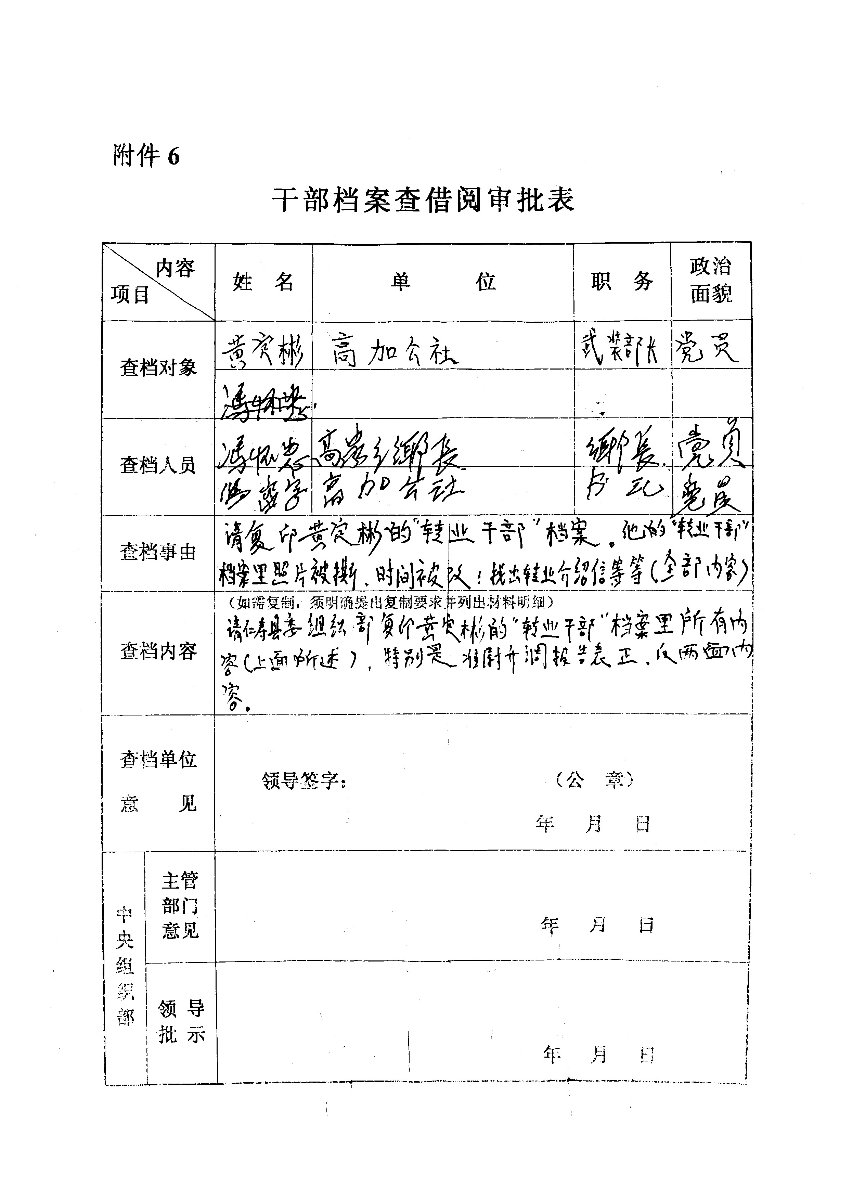 附件 6
干部档案查借阅审批表
内容
项目
姓 名
单 位
职 务
政治
面貌
查档对象
黄定彬
高加公社
武装部长
党员
冯怀忠
查档人员
冯怀忠
高 乡鄉長
鄉長
党员
高加公社
书记
党员
查档事由
请复印黄定彬的“转业干部”档案。他的“转业干部”
档案里照片被撕、时间被改！找出转业介绍信等等(全部内容)
查档内容
(如需复制，须明确提出复制要求并列出材料明细)
请仁寿县委组织部复印黄定彬的“转业干部”档案里所有内
容(上面所述)，特别是准尉军衔报告表正、反两面内
容。
查档单位
意 见
领导签字：
（公 章）
年 月 日
中央组织部
主管
部门
意见
年 月 日
领 导
批 示
年 月 日